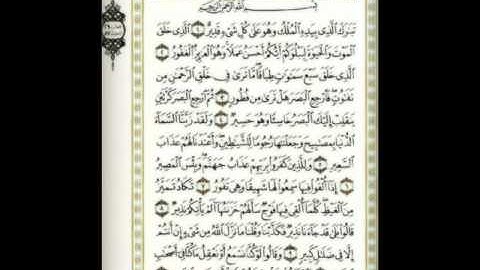 بسم الله الرحمن الرحيم
تبرك الذي بيده الملك وهو على كل شيء قدير ١ الذي خلق
الموت والحيوة ليبلوكم أيكم أحسن عملا وهو العزيز الغفور ٢
الذي خلق سبع سموت طباقا ما ترى في خلق الرحمن من
تفوت فارجع البصر هل ترى من فطور ٣ ثم ارجع البصر كرتين
ينقلب إليك البصر خاسئا وهو حسير ٤ ولقد زينا السماء
الدنيا بمصبيح وجعلنها رجوما للشيطين وأعتدنا لهم عذاب
السعير ٥ وللذين كفروا بربهم عذاب جهنم وبئس المصير
٦ إذا ألقوا فيها سمعوا لها شهيقا وهي تفور ٧ تكاد تميز
من الغيظ كلما ألقي فيها فوج سألهم خزنتها ألم يأتكم نذير ٨
قالوا بلى قد جاءنا نذير فكذبنا وقلنا ما نزل الله من شيء إن أنتم
إلا في ضلل كبير ٩ وقالوا لو كنا نسمع أو نعقل ما كنا في أصحب